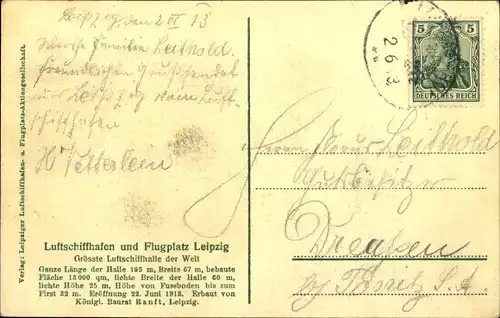 Leipzig, den 2 VI 13
Werte Familie Leithold.
Freundlichen Gruss sendet
aus Leipzig vom Luft-
schiffhafen
H Vetterlein
5 5
DEUTSCHES REICH
2.6.13
Herrn Leithold
Gutsbesitzer
S. A.
Luftschiffhafen und Flugplatz Leipzig
Grösste Luftschiffhalle der Welt
Ganze Länge der Halle 193 m, Breite 67 m, bebaute
Fläche 13000 qm, lichte Breite der Halle 60 m,
lichte Höhe 25 m, Höhe von Fussboden bis zum
First 32 m. Eröffnung 22. Juni 1913. Erbaut von
Königl. Baurat Hanft, Leipzig.
Verlag: Leipziger Luftschiffhafen- u. Flugplatz-Aktiengesellschaft.